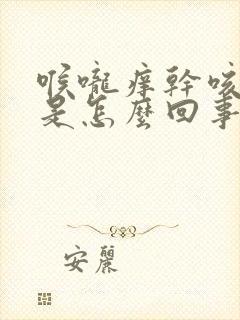 喉嚨痒幹咳
是怎麼回事
安麗